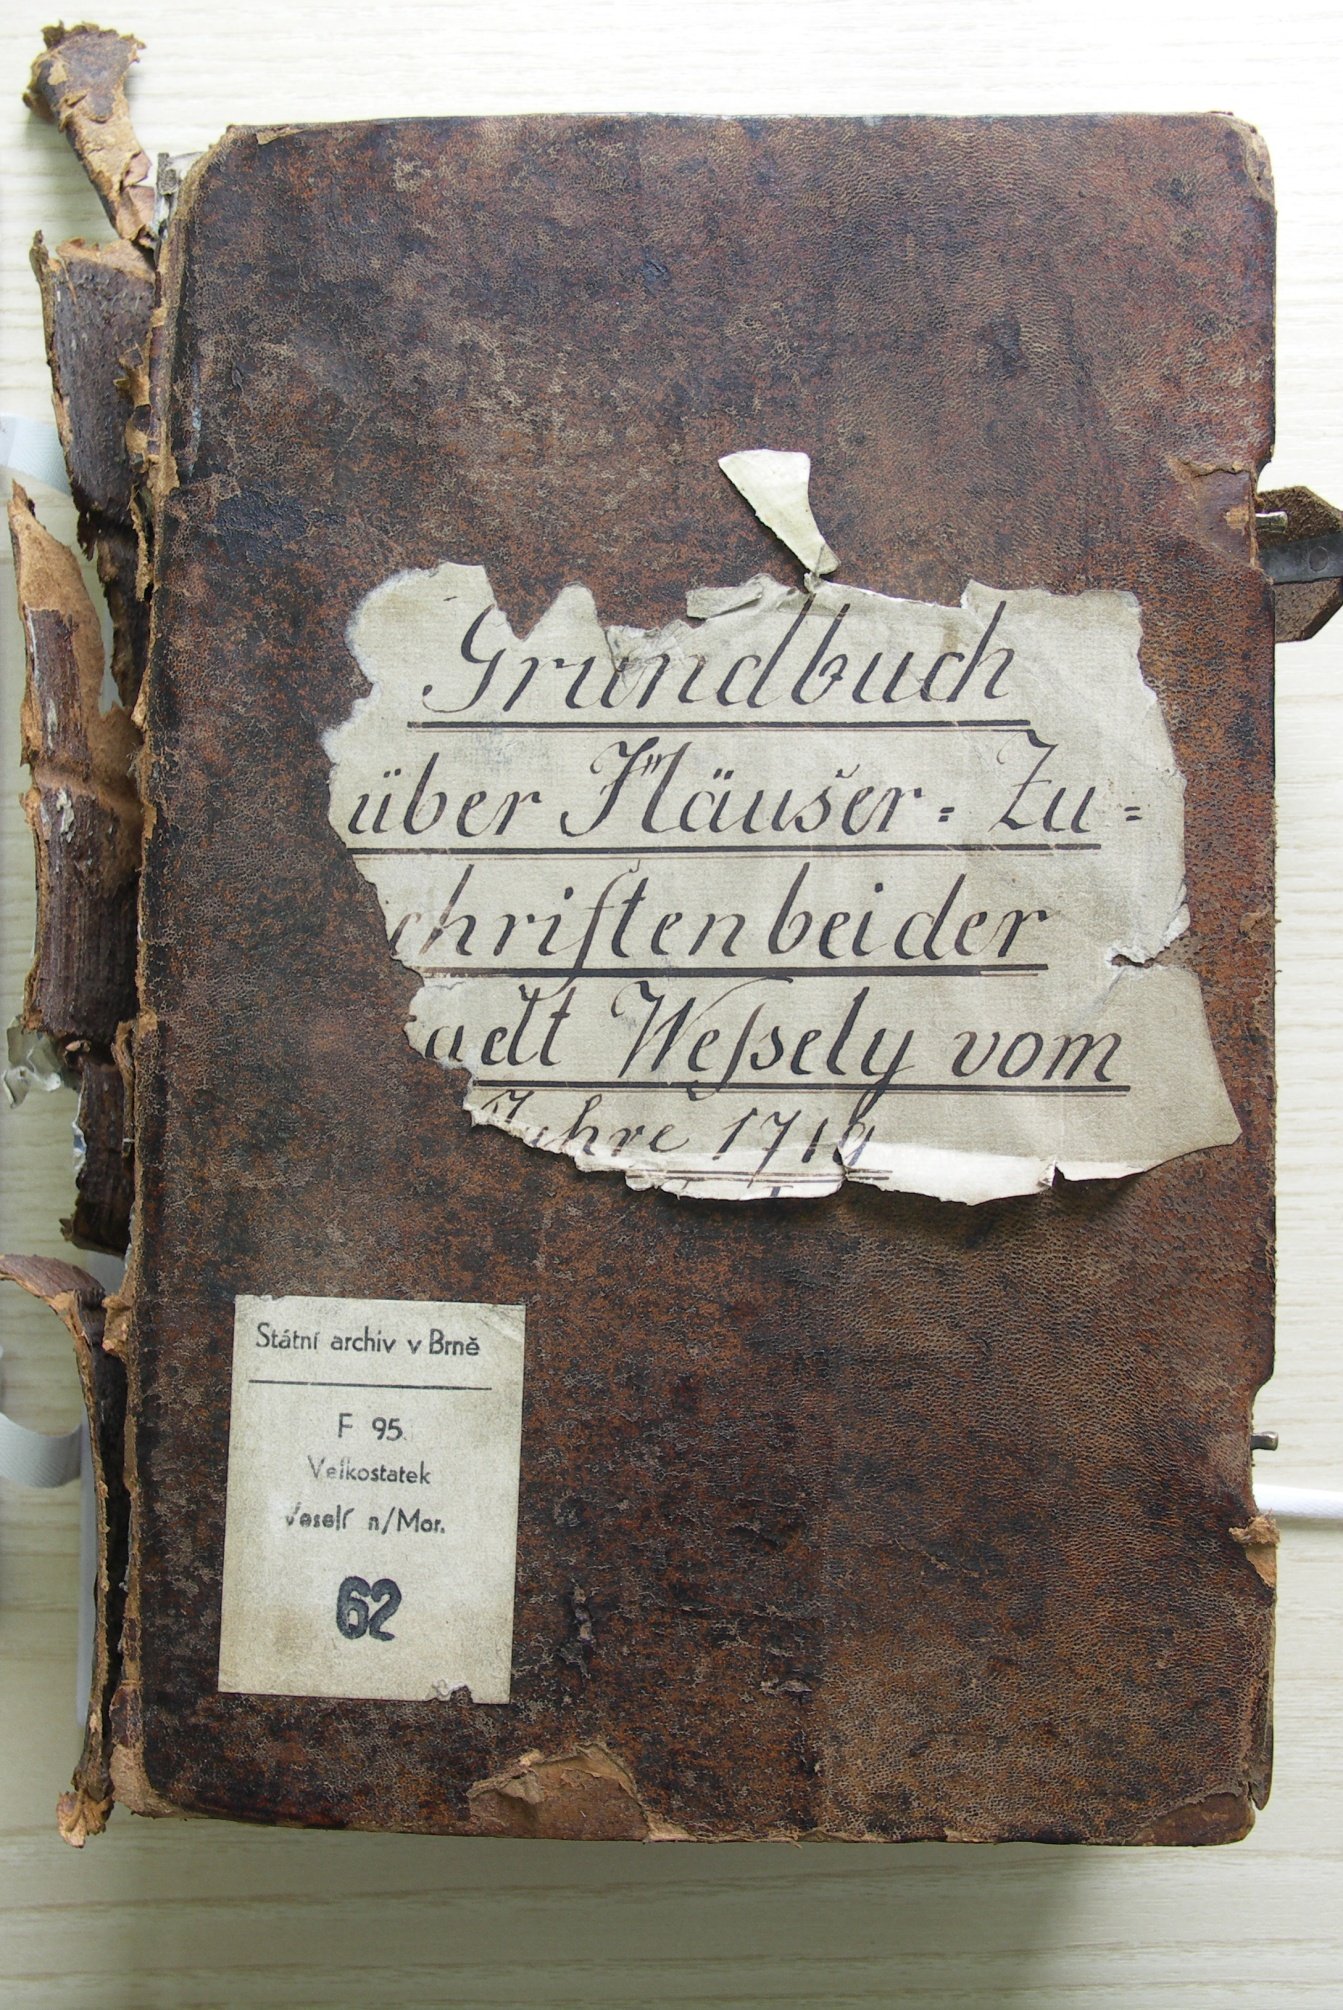 Grundbuch
über Häuser= Zu=
chriften bei der
adt Weſsely vom
Jahre 1719
Státní archiv v Brně
F 95.
Velkostatek
Veselí n/Mor.
62